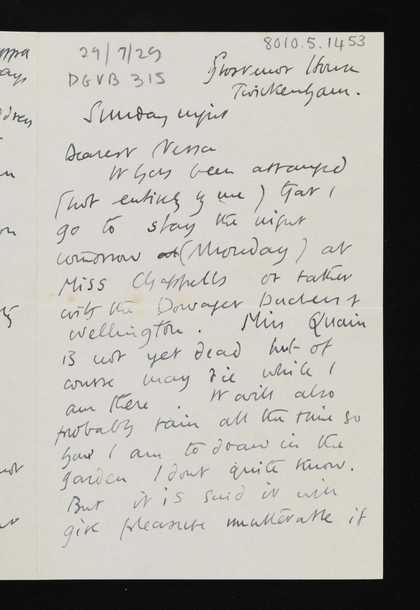 29/7/29
8010.5.1453
DGVB 315
Grosvenor House
Twickenham.
Sunday night
Dearest Nessa
It has been arranged
(not entirely by me) that I
go to stay the night
tomorrow (Monday) at
Miss Chappells or rather
with the Dowager Duchess of
Wellington. Miss Quain
is not yet dead but of
course may die while I
am there. It will also
probably rain all the time so
how I am to draw in the
garden I dont quite know.
But it is said it will
give pleasure unutterable if